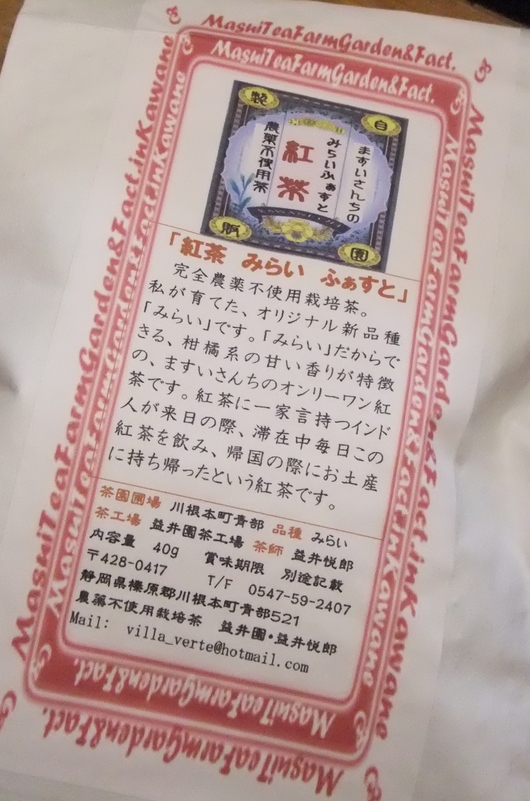 MasuiTeaFarmGarden&Fact.
MasuiTeaFarmGarden&Fact.
MasuiTeaFarmGarden&Fact.inKawane
MasuiTeaFarmGarden&Fact.inKawane
MasuiTeaFarmGarden&Fact.inKawane
MasuiTeaFarmGarden&Fact.inKawane
自
製
園
ますいさんちの
みらいふぁすと
紅茶
農薬不使用茶
「紅茶 みらい ふぁすと」
完全農薬不使用栽培茶。
私が育てた、オリジナル新品種
「みらい」です。「みらい」だからで
きる、柑橘系の甘い香りが特徴
の、ますいさんちのオンリーワン紅
茶です。紅茶に一家言持つインド
人が来日の際、滞在中毎日この
紅茶を飲み、帰国の際にお土産
に持ち帰ったという紅茶です。
茶園圃場 川根本町青部 品種 みらい
茶工場 益井園茶工場 茶師 益井悦郎
内容量 40g 賞味期限 別途記載
〒428-0417 T/F 0547-59-2407
静岡県榛原郡川根本町青部521
農薬不使用栽培茶 益井園・益井悦郎
Mail: villa_verte@hotmail.com
MasuiTeaFarmGarden&Fact.
MasuiTeaFarmGarden&Fact.